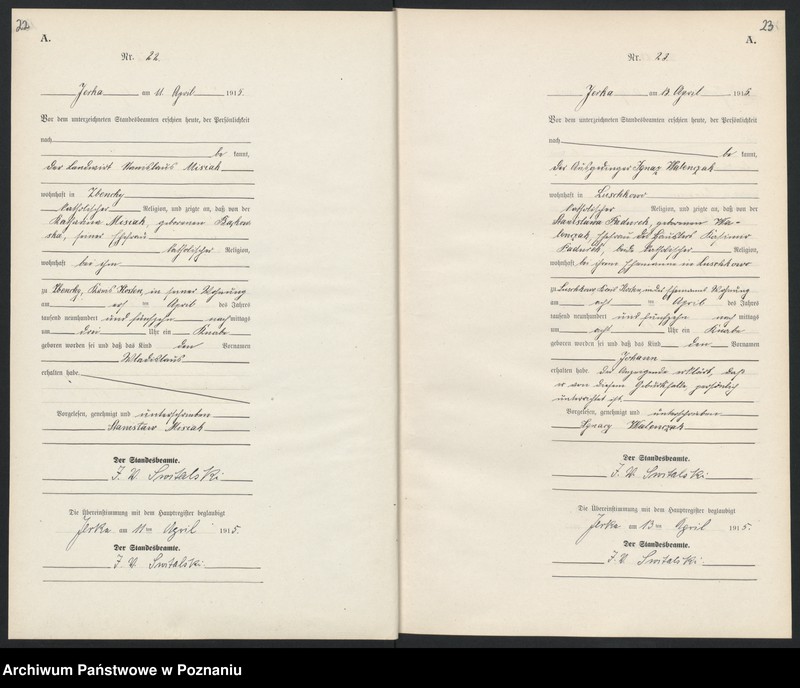 22
A.
Nr. 22
Jerka am 11 April 1915.
Vor dem unterzeichneten Standesbeamten erschien heute, der Persönlichkeit
nach
be kannt,
der Landwirt Stanislaus Misiak
wohnhaft in Zbenchy
katholischer Religion, und zeigte an, daß von der
Katharina Misiak, geborenen
seiner Ehefrau
katholischer Religion,
wohnhaft bei ihm
zu Zbenchy, Kreis Kosten, in seiner Wohnung
am am April des Jahres
tausend neunhundert und fünfzehn nach mittags
um drei Uhr ein Knabe
geboren worden sei und daß das Kind den Vornamen
Wladislaus
erhalten habe.
Vorgelesen, genehmigt und unterschrieben
Stanisław Misiak
Der Standesbeamte.
J. V. Switalski
Die Übereinstimmung mit dem Hauptregister beglaubigt
Jerka am 11ten April 1915.
Der Standesbeamte.
J. V. Switalski
23
A.
Nr. 23.
Jerka am 13 April 1915.
Vor dem unterzeichneten Standesbeamten erschien heute, der Persönlichkeit
nach
be kannt,
der Ausgedinger Ignaz Walenczak
wohnhaft in Luschkowo
katholischer Religion, und zeigte an, daß von der
Stanislawa Fadurek, geborenen Wa-
lenczak, Ehefrau des Häuslers Kasimir
Fadurek, beide katholischer Religion,
wohnhaft bei ihrem Ehemanne in Luschkowo
zu Luschkowo, Kreis Kosten, in des Ehemanns Wohnung
am acht ten April des Jahres
tausend neunhundert und fünfzehn nach mittags
um acht Uhr ein Knabe
geboren worden sei und daß das Kind den Vornamen
Johann
erhalten habe. Der Anzeigende erklärt, daß
er von diesem Geburtsfalle persönlich
unterrichtet ist.
Vorgelesen, genehmigt und unterschrieben
Ignacy Walenczak
Der Standesbeamte.
J. V. Switalski
Die Übereinstimmung mit dem Hauptregister beglaubigt
Jerka am 13ten April 1915.
Der Standesbeamte.
J. V. Switalski
Archiwum Państwowe w Poznaniu